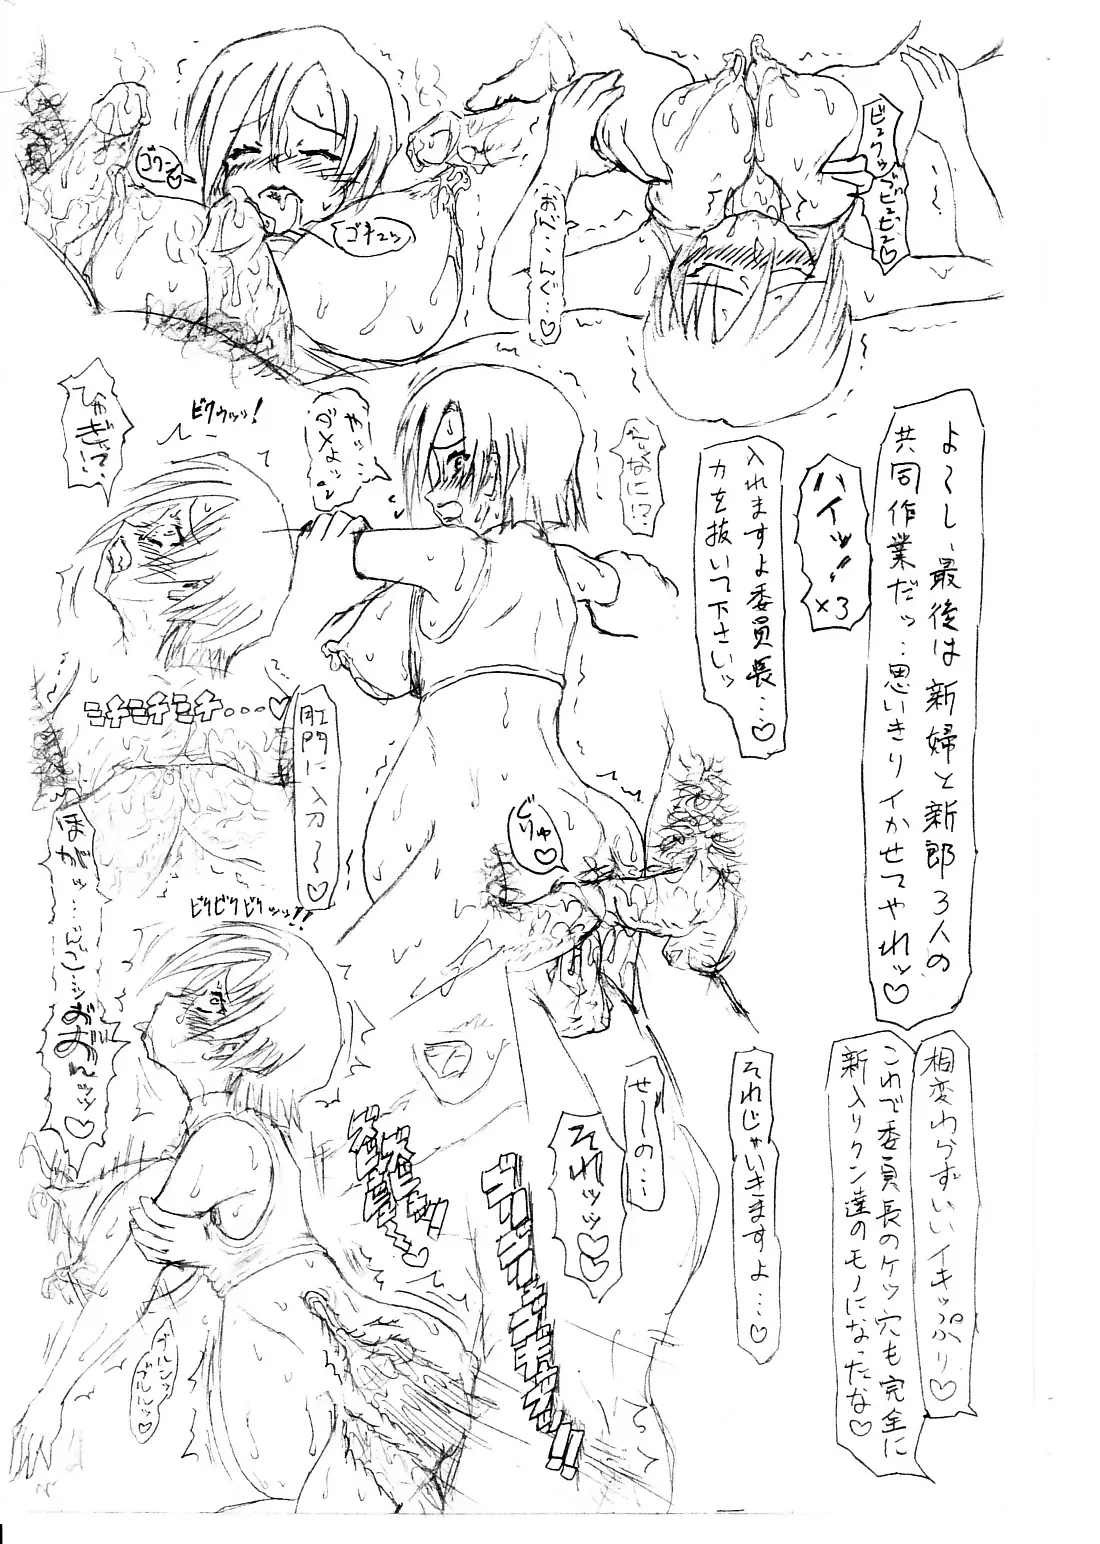 ビュクッブビュビュ♡
おべ…んぐ…♡
ゴキュッ
ゴクン♡
よ～し、最後は新婦と新郎3人の
共同作業だッ…思いきりイかせてやれッ♡
ハイッ!! ×3
入れますよ委員長…♡
力を抜いて下さいッ
やッ…
ダメよッ
ビクウッッ!
ひゃぎゃ!?
肛門に入刀～♡
ミチミチミチ…♡
どりゅ♡
相変わらずいいイキッぷり♡
これで委員長のケツ穴も完全に
新入りクン達のモノになったな♡
それじゃいきますよ…♡
せーの…
それッッ♡
ビクビクビクッッ!!